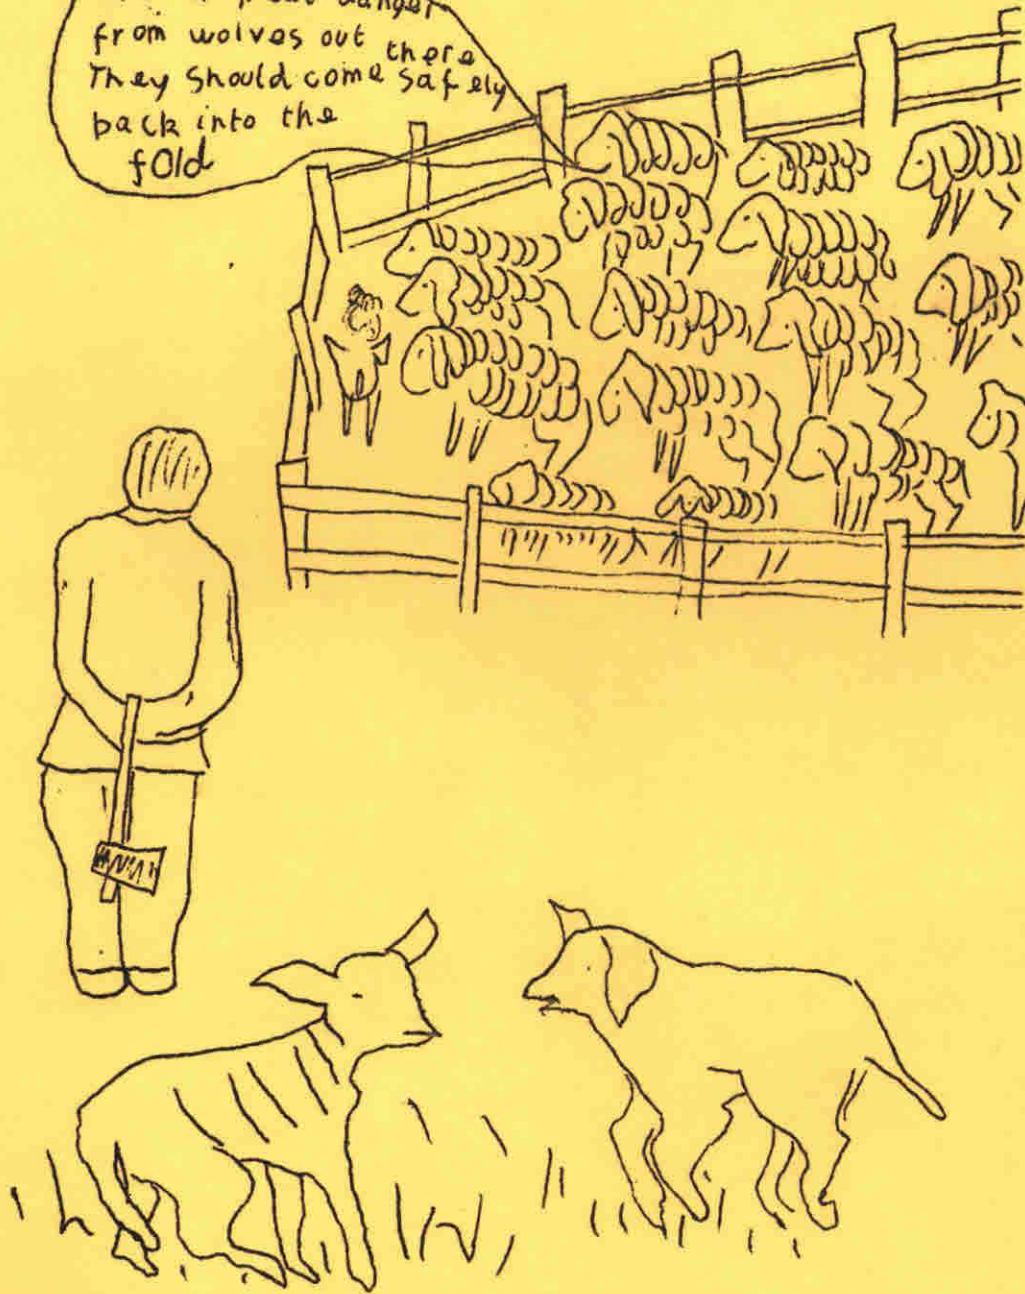 danger
from wolves out there
They should come safely
back into the
fold